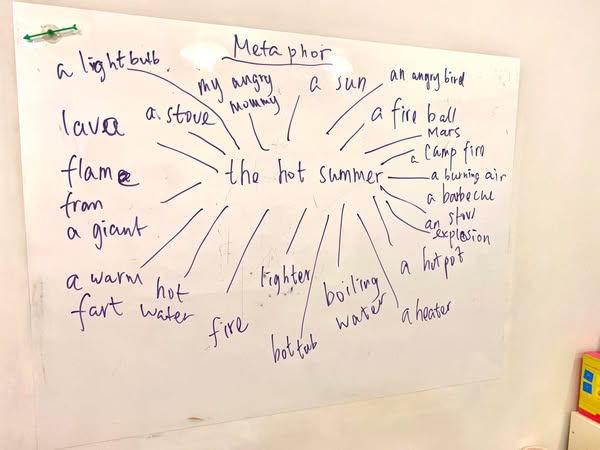 Metaphor
a lightbulb.
my angry
mommy
a sun
an angry bird
a stove
a fire ball
lava
Mars
a Camp fire
the hot summer
flame
from
a giant
a burning air
a barbecue
an
explosion
a warm
fart
hot
water
fire
lighter
hot tub
boiling
water
a heater
a hotpot